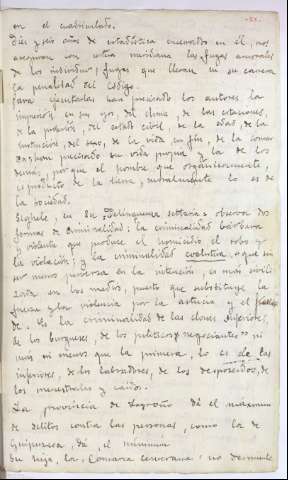 en el cuatrienio.
Diez y seis años de estadística encerrados en él, nos
aseguran con cifra meridiana las fugas morales
de los individuos; fugas que llevan en su carrera
la penalidad del Código.
Para ejecutarlas han precisado los autores la
en sus yos, del clima, de las estaciones,
de la profesión, del estado civil, de la edad, de la
instrucción, del sexo, de la vida en fin, de la
precisado su vida propia y la de los
demás; porque el hombre que orgánicamente,
es producto de la tierra, moralmente lo es de
la sociedad.
Sighele, en su "Delinquenza settaria" observa dos
formas de criminalidad: la criminalidad bárbara
y violenta que produce el homicidio el robo y
la violación; y la criminalidad evolutiva, que sin
ser menos perversa en la intención, es más civili-
zada en los medios, puesto que substituye la
fuerza y la violencia por la astucia y el
de. Es la criminalidad de las clases superiores,
de los burgueses, de los políticos "negociantes" ni
más ni menos que la primera, lo es de las
inferiores, de los labradores, de los desposeídos, de
los menestrales y caídos.
La provincia de Logroño dá el maximum
de delitos contra las personas, como la de
Guipuzcoa, dá, el minimum
Su hija, la Comarca cerverana: no desmiente